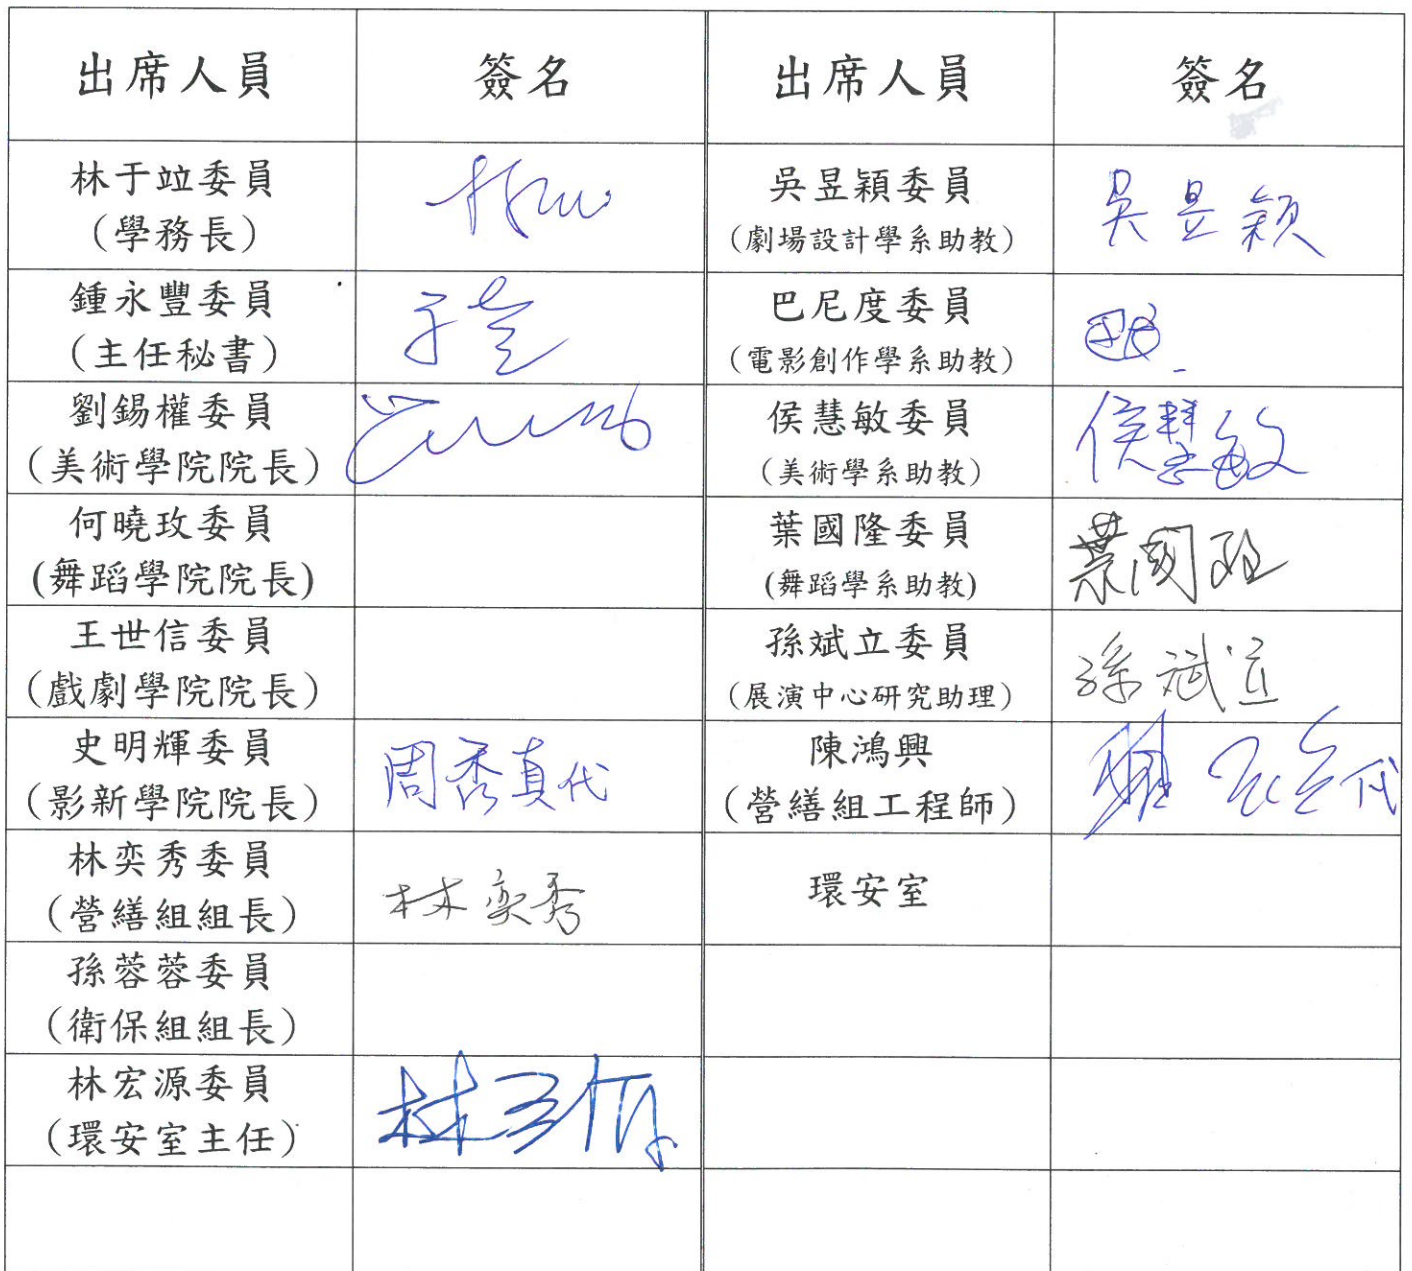 出席人員 簽名 出席人員 簽名
林于竝委員
(學務長)
吳昱穎委員
(劇場設計學系助教)
吳昱穎
鍾永豐委員
(主任秘書)
巴尼度委員
(電影創作學系助教)
劉錫權委員
(美術學院院長)
侯慧敏委員
(美術學系助教)
侯慧敏
何曉玫委員
(舞蹈學院院長)
葉國隆委員
(舞蹈學系助教)
葉國隆
王世信委員
(戲劇學院院長)
孫斌立委員
(展演中心研究助理)
孫斌立
史明輝委員
(影新學院院長)
周秀真代
陳鴻興
(營繕組工程師)
代
林奕秀委員
(營繕組組長)
林奕秀
環安室
孫蓉蓉委員
(衛保組組長)
林宏源委員
(環安室主任)
林宏源